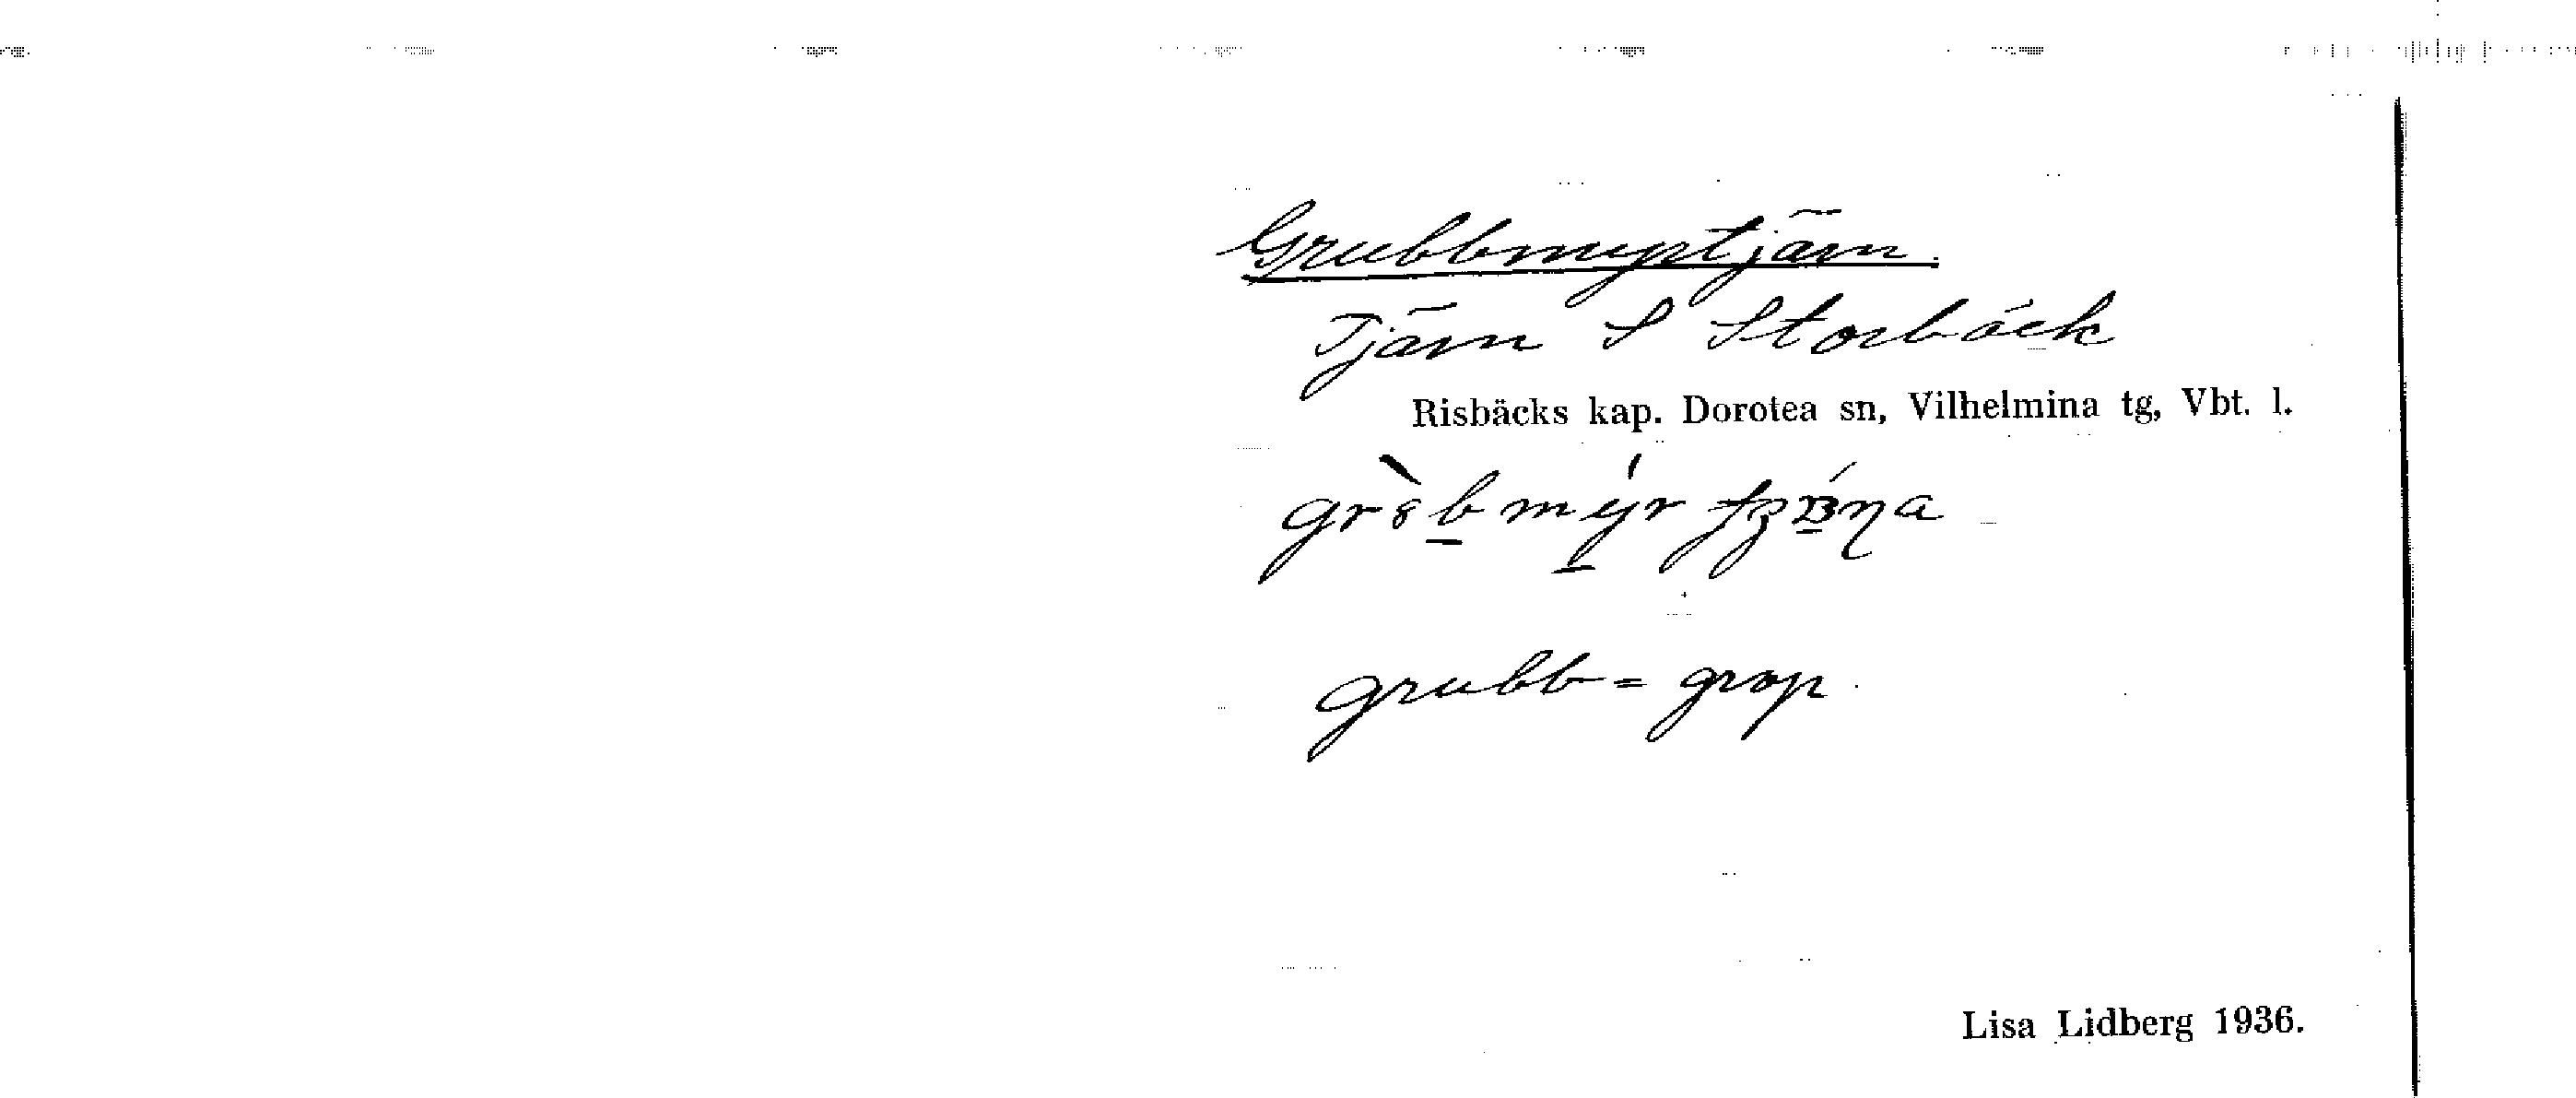 Grubbmyrtjärn.
Tjärn S Storbäck
Risbäcks kap. Dorotea sn, Vilhelmina tg, Vbt. l.
grubb = grop
Lisa Lidberg 1936.